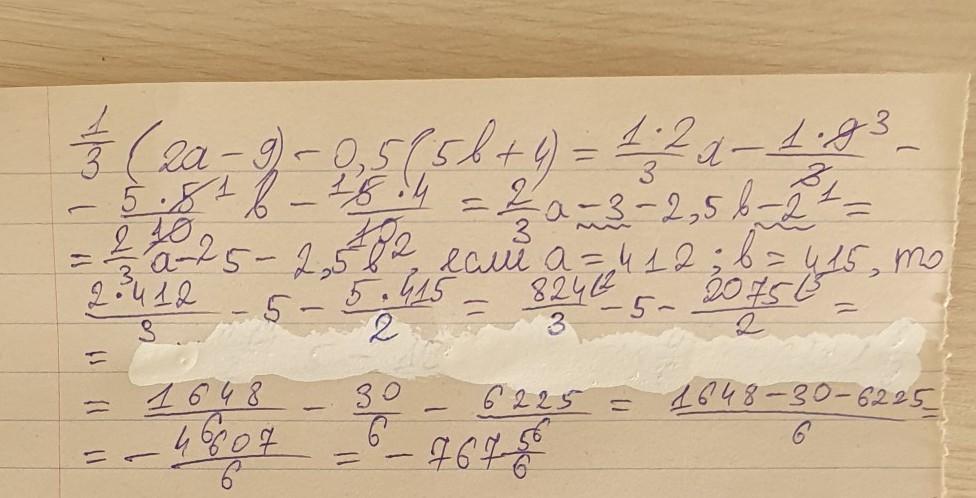 1/3 (2a - 9) - 0,5(5b + 4) = 1·2/3 a - 1·9³/3 -
- 5·5¹/10₂ b - ¹5·4/10₂ = 2/3 a - 3 - 2,5b - 2 =
= 2/3 a - 5 - 2,5b, если a = 412 ; b = 415, то
2·412/3 - 5 - 5·415/2 = 824⁽²/3 - 5 - 2075⁽³/2 =
=
= 1648/6 - 30/6 - 6225/6 = 1648 - 30 - 6225/6 =
= - 4607/6 = - 767 5/6